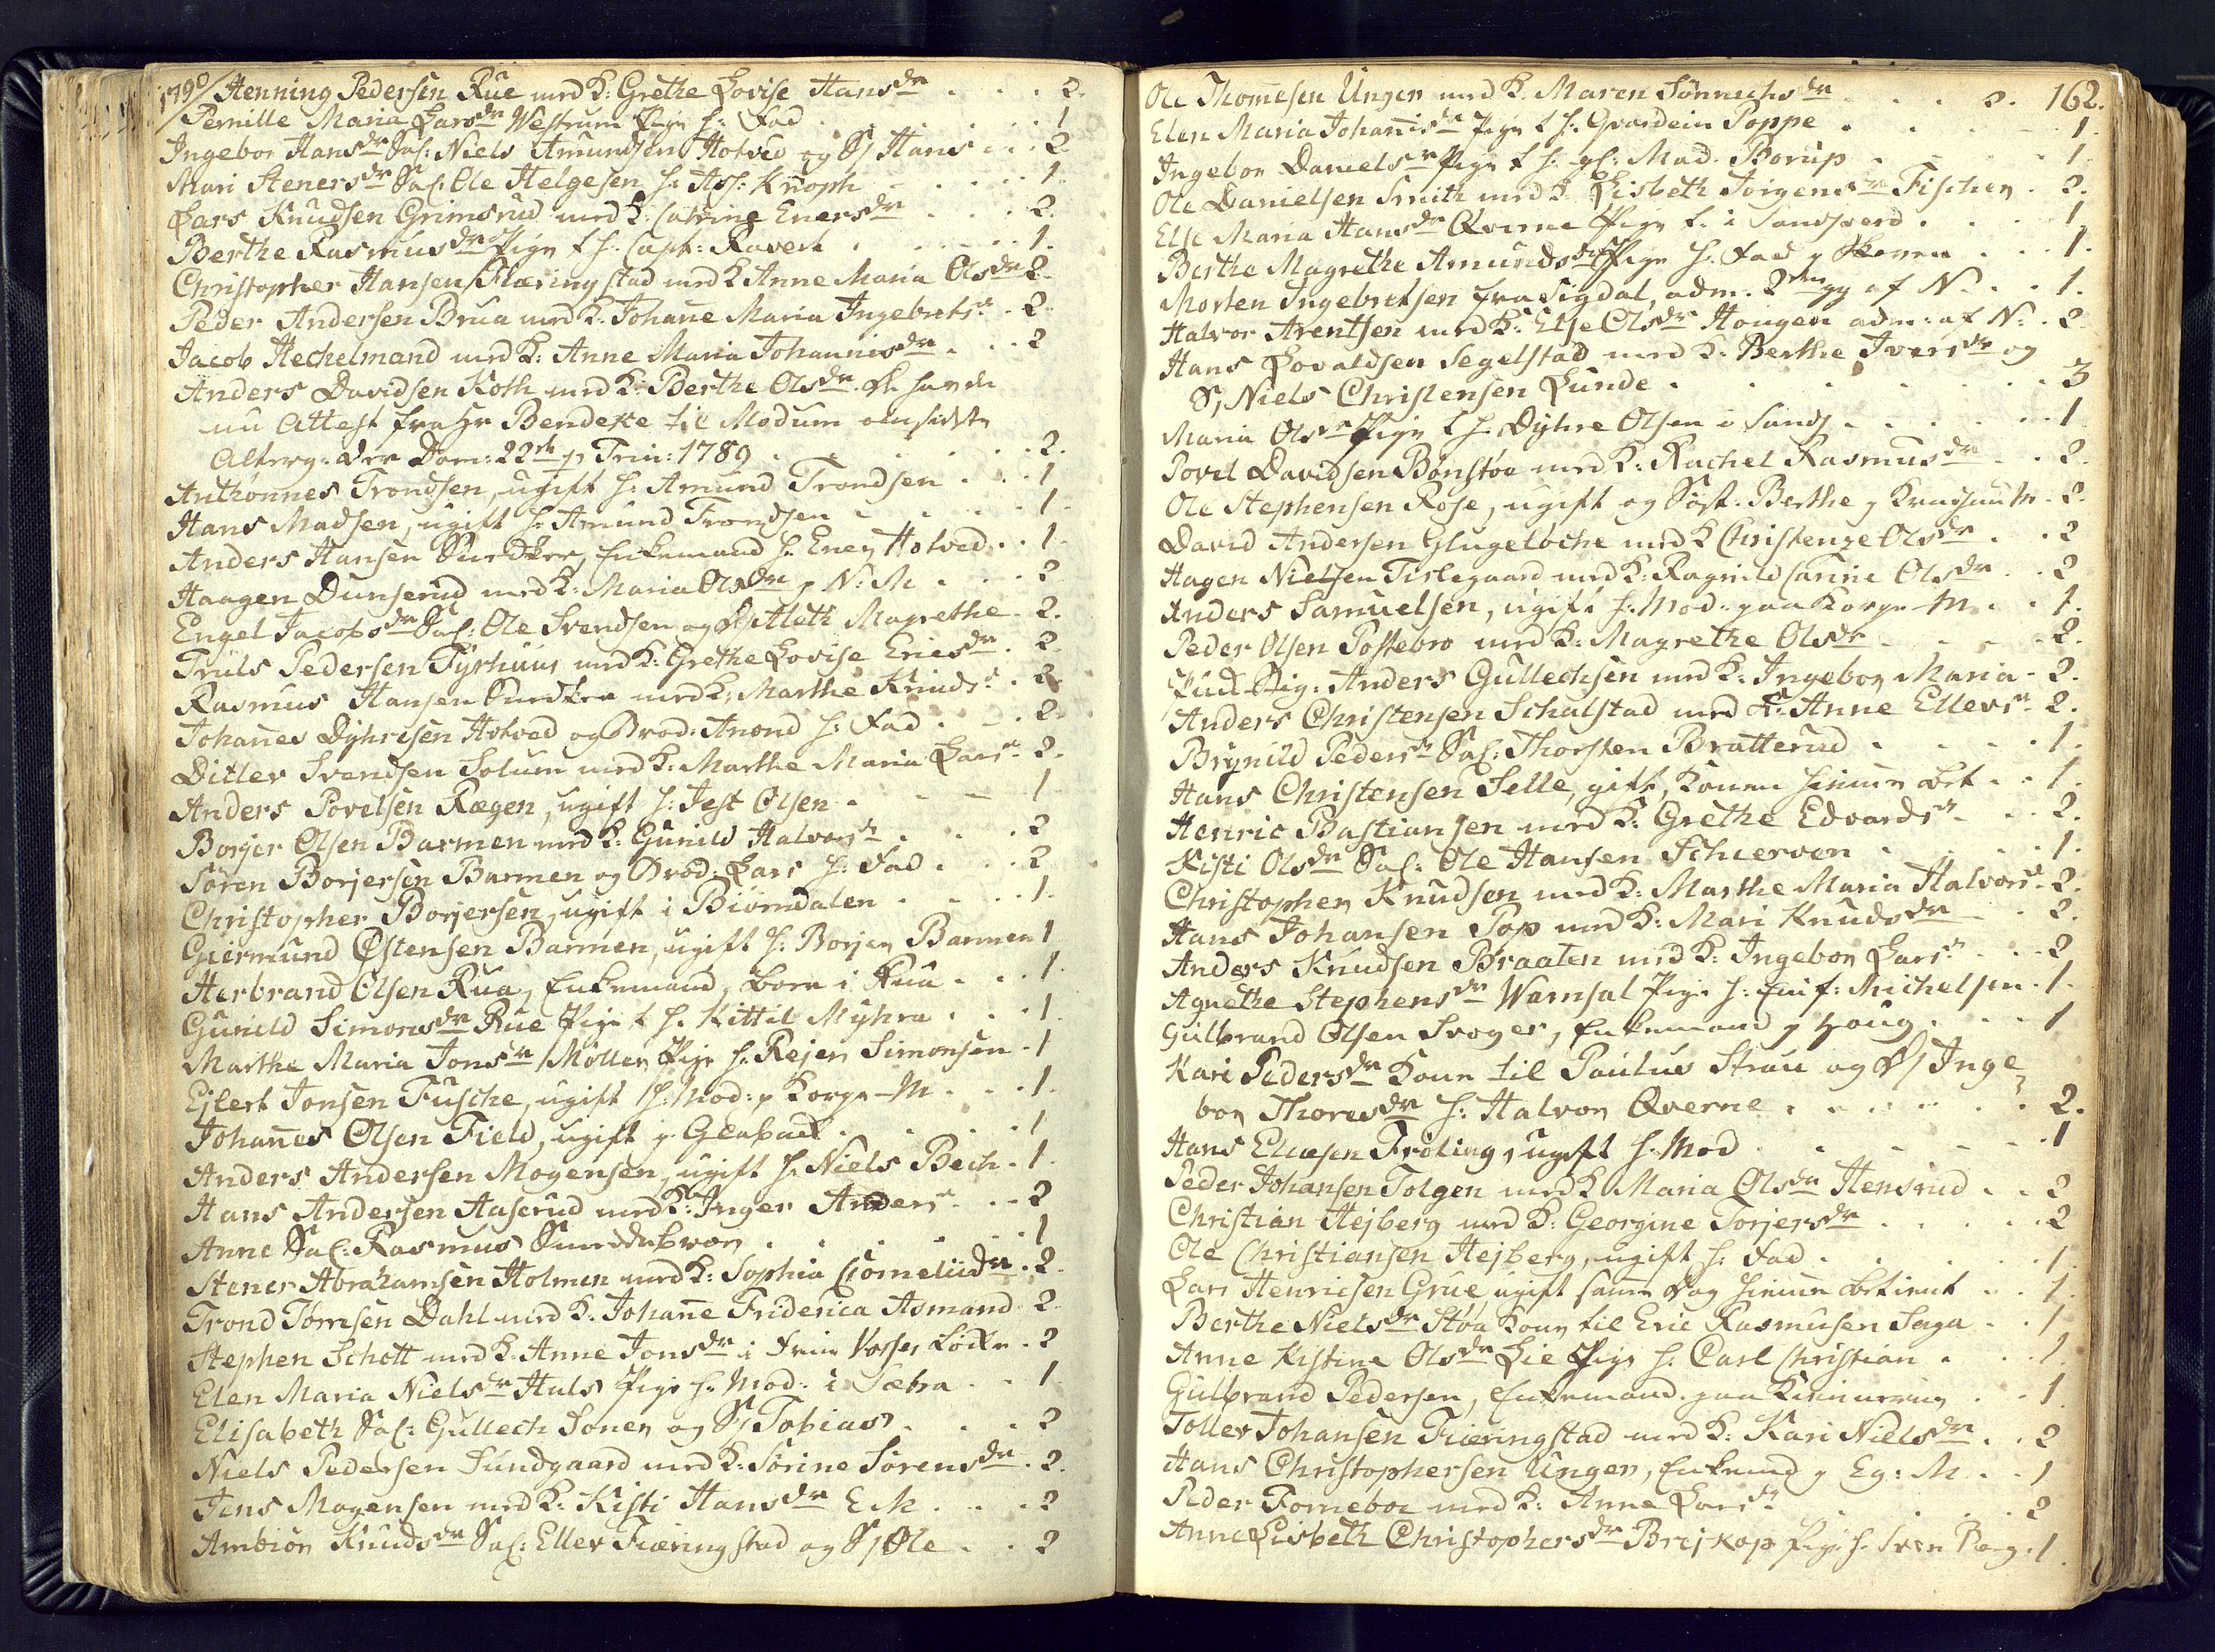 1790/ Henning Pedersen Rue med K: Grethe Lovise Hansdr . . . 2.
Pernille Maria Larsdr Westrum Pige h: Fad . . . 1
Ingebor Hansdr Sal: Niels Amundsen Hotved og S/ Hans . . . 2
Mari Stenersdr Sal: Ole Helgesen h: Ass: Knoph . . . 1.
Lars Knudsen Grimsrud med K: Catrine Enersdr . . . 2.
Berthe Rasmusdr Pige t h: Capt: Ravert . . . 1.
Christopher Hansen Flæringstad med K Anne Maria Olsdr 2
Peder Andersen Brua med K: Johanne Maria Ingebretsr . 2.
Jacob Hechelmand med K: Anne Maria Johannisdr . . . 2
Anders Davidsen Koth med K: Berthe Olsdr. De havde
nu Attest fra Hr Bendeke til Modum
Alterg: der Dom: 22de p Trin: 1789 . . . 2.
Anthonnes Trondsen, ugift h: Amund Trondsen . . 1
Hans Madsen, ugift h: Amund Trondsen . . . 1.
Anders Hansen Enkemand h: Ener Hotved . . 1
Haagen Dunserud med K: Maria Olsdr p N: M . . . 2
Engel Jacobsdr Sal: Ole Svendsen og D/ Aleth Magrethe . 2.
Truls Pedersen Fyrhuus med K: Grethe Lovise Ericsdr . 2.
Rasmus Hansen med K: Marthe Knudsr . 2
Johannes Dyhrisen Hotved og Brod: Anond h: Fad . . . 2
Ditlev Svendsen Solum med K: Marthe Maria Larsr . 2.
Anders Povelsen Rægen, ugift h: Jest Olsen . . . 1
Borjer Olsen Barmen med K: Gunild Halvorsr . . . 2
Søren Borjersen Barmen og Brod: Lars h: Fad . . . 2
Christopher Borjersen, ugift i Biørndalen . . . 1.
Giermund Østensen Barmen, ugift h: Borjer Barmen 1
Herbrand Olsen Rua, Enkemand, boer i Rua . . . 1.
Gunild Simonsdr Rue Pige t h: Kittil Myhra . . . 1
Marthe Maria Jonsr Møller Pige h: Rejer Simonsen . 1
Ejlert Jonsen Fusche, ugift h: Mod: p Korpe-M . . . 1.
Johannes Olsen Field, ugift p . . . 1
Anders Andersen Mogensen, ugift h: Niels Bech . 1.
Hans Andersen Haserud med K: Inger Andersr . . . 2
Anne Sal: Rasmus . . . 1
Stener Abrahamsen Holmen med K: Sophia Corneliidr . 2.
Trond Tomsen Dahl med K: Johanne Friderica Asmand 2.
Stephen Schott med K: Anne Jonsdr i . 2
Elen Maria Nielsdr Huls Pige h: Mod: i Sætra . . 1.
Elisabeth Sal: Gullech Soner og S/ Tobias . . . 2
Niels Pedersen Sundgaard med K: Sørine Sørensdr . 2.
Jens Mogensen med K: Kisti Hansdr Eek . . . 2
Ambiør Knudsdr Sal: Eller Fiæringstad og S/ Ole . . 2
162.
Ole Thomesen Unger med K. Maren Sønnichsdr . . . 2.
Elen Maria Johannisdr Pige t h: Gvardein Poppe . . . 1.
Ingebor Danielsr Pige t h: gl: Mad. Borup . . . 1.
Ole Danielsen Smith med K: Lisbeth Joigensr Fischer . 2.
Else Maria Hansdr Qverne Pige t. i Sandsverd . . . 1
Berthe Magrethe Amundsdr Pige h: Fad p . . . 1.
Morten Ingebretsen fra Sigdal, adm. 2den gg af N: . . 1.
Halvor Arentsen med K: Else Olsdr Hougen adm: af N: . 2
Hans Lovaldsen Segelstad med K: Berthe Iversdr og
S/ Niels Christensen Lunde . . . 3
Maria Olsdr Pige t h: Dyhre Olsen i Sands . . . 1
Povel Davidsen Bønstøe med K: Rachel Rasmusdr . . 2.
Ole Stephensen Rose, ugift og Søst: Berthe p . 2.
David Andersen Glugeløche med K Christenze Olsdr . . 2
Hagen Nielsen Tislegaard med K: Ragnild Carine Olsdr . . 2
Anders Samuelsen, ugift h: Mod: paa Korpe-M . . 1.
Peder Olsen Postebro med K: Magrethe Olsdr . . . 2.
Anders Gullechsen med K: Ingebor Maria . 2.
Anders Christensen Schalstad med K: Anne Ellevsr . 2.
Brynild Pedersr Sal: Thorsten Bratterud . . . 1.
Hans Christensen Selle, gift, Konen hiemme bet . . 1.
Henric Bastiansen med K: Grethe Edvardsr . . . 2.
Kisti Olsdr Sal: Ole Hansen Schierven . . . 1.
Christopher Knudsen med K: Marthe Maria Halvorsr . 2.
Hans Johansen Pop med K: Mari Knudsdr . . . 2.
Anders Knudsen Braaten med K: Ingebor Larsr . . . 2
Agnethe Stephensdr Warnsal Pige h: Michelsen . 1.
Gulbrand Olsen Svoger, Enkemand p Houg . . . 1
Kari Pedersdr Kone til Paulus Strau og D/ Inge
bor Thoresdr h: Halvor Qverne . . . 2.
Hans Eliesen Frøling, ugift h: Mod . . . 1
Peder Johansen Tolgen med K Maria Olsdr Hensrud . . 2
Christian Hejberg med K: Georgine Torjersdr . . . 2
Ole Christiansen Hejberg, ugift h: Fad . . . 1.
Lars Henricsen Grue, ugift samme Dag hiemme betient . . 1.
Berthe Nielsdr Støa Kone til Eric Rasmusen Saga . . 1
Anne Kistine Olsdr Lie Pige h: Carl Christian . . . 1.
Gulbrand Pedersen, Enkemand paa . . 1.
Tollev Johansen Fiæringstad med K: Kari Nielsdr . . 2
Hans Christophersen Unger, Enkemd p Eg: M . . 1
Peder Forneboe med K: Anne Larsr . . . 2
Anne Lisbeth Christophersdr Brejkop Pige h: Iver . 1.